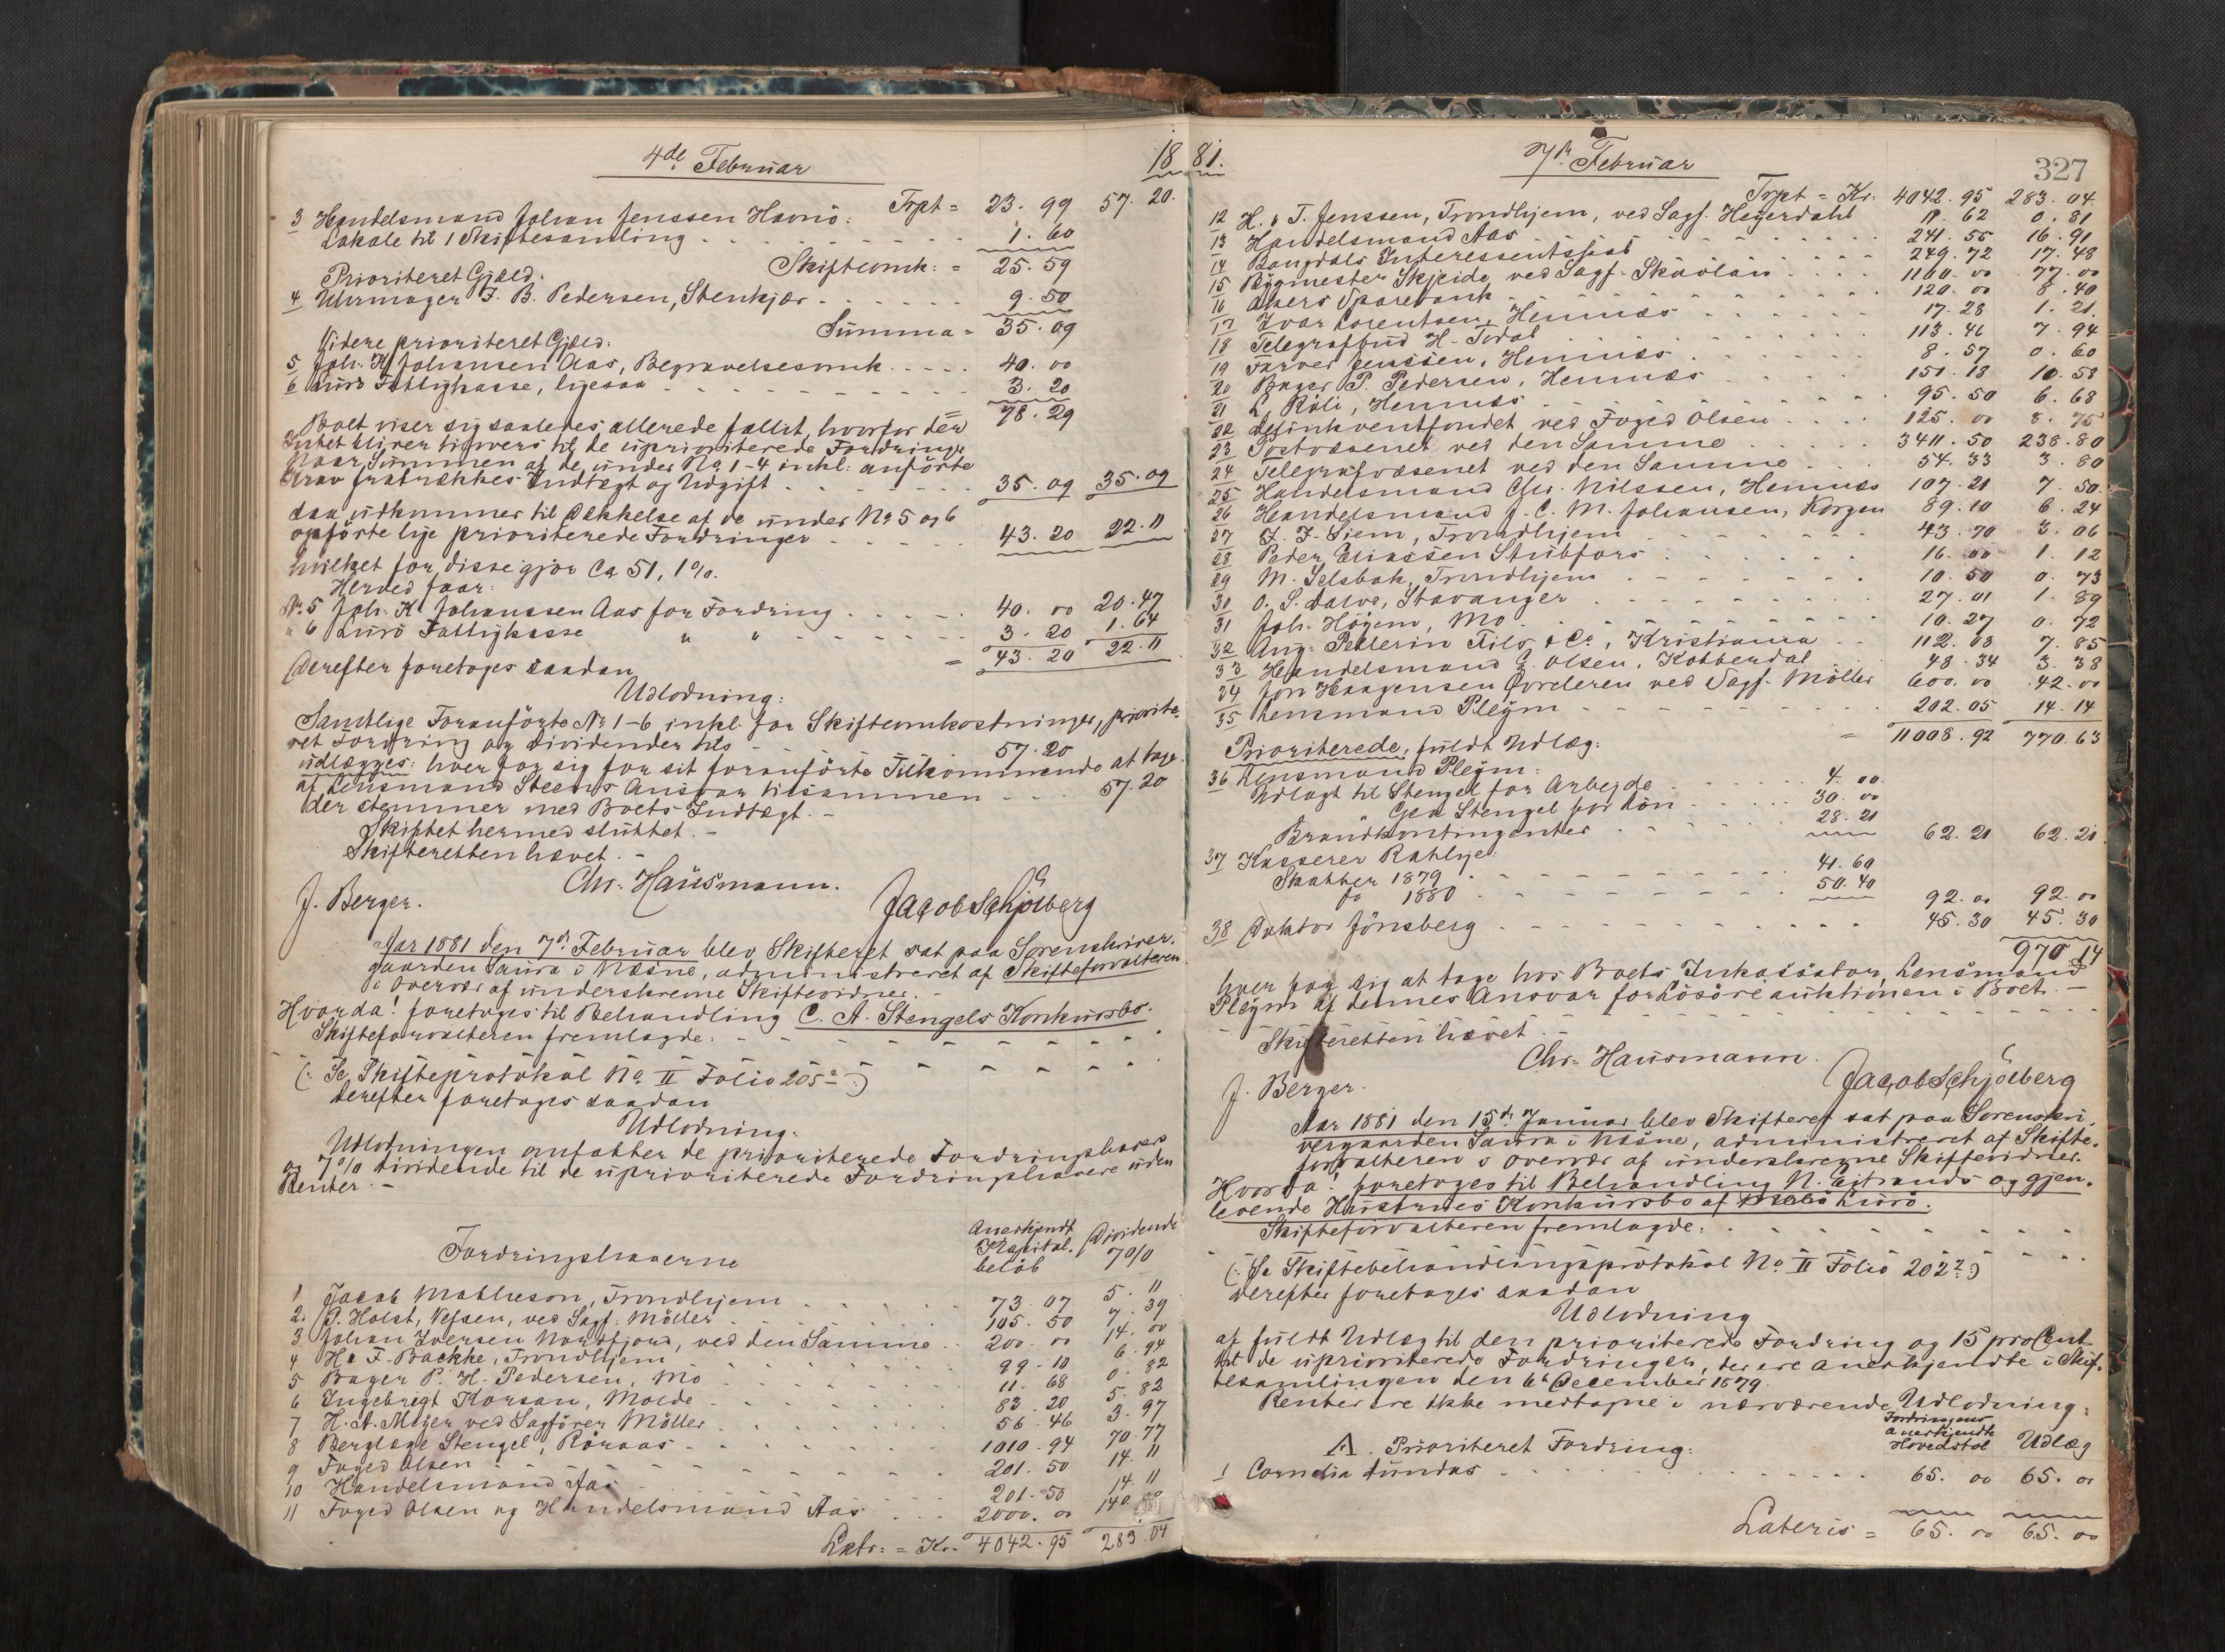 4de Februar
1881.
Trpt = 23.99 57.20.
3 Handelsmand Johan Jenssen Havnö:
Lokale til 1 Skiftesamling 1.60
Skifteomk: = 25.59
Prioriteret Gjæld:
4 Uhrmager J. B. Pedersen, Stenkjær 9.50
Summa = 35.09
Videre prioriteret Gjæld:
5 Joh. K. Johansen Aas, Begravelsesomk 40.00
6 Lurö Fattigkasse, ligesaa 3.20
= 78.29
Boet viser sig saaledes allerede fallit, hvorfor der
Intet bliver tilovers til de uprioriterede Fordringer
Naar Summen af de under No 1-4 inkl: anförte
Krav fratrækkes Indtægt og Udgift 35.09 35.09
saa udkommer til Dækkelse af de under No 5 og 6
opförte lige prioriterede Fordringer 43.20 22.11
hvilket for disse gjör Ca 51,1%.
Herved faar:
No 5 Joh. K. Johanssen Aas for Fordring 40.00 20.47
" 6 Lurö Fattigkasse " " 3.20 1.64
= 43.20 22.11
Derefter foretoges saadan
Udlodning:
Samtlige Foranförte No 1-6 inkl. for Skifteomkostninger, priorite-
ret Fordring og Dividender tils 57.20
udlægges: hver for sig for sit foranförte Tilkommende at tage
af Lensmand Steens Ansvar tilsammen 57.20
der stemmer med Boets Indtægt.-
Skiftet hermed sluttet.-
Skifteretten hævet.-
Chr. Hausmann.
J. Berger. Jacob Schjelberg
Aar 1881 den 7de Februar blev Skifteret sat paa Sorenskriver-
gaarden Saura i Næsne, administreret af Skifteforvalteren
i Overvær af underskrevne Skiftevidner.-
Hvorda! foretoges til Behandling C. A. Stengels Konkursbo.
Skifteforvalteren fremlagde:
(: Se Skifteprotokol No II Folio 205 :)
Derefter foretoges saadan
Udlodning:
Udlodningen omfatter de prioriterede Fordringshavere
og 7% Dividende til de uprioriterede Fordringshavere uden
Renter.-
Fordringshaverne Anerkjendt Kapital. belöb Dividende 7%
1 Jacob Matheson, Trondhjem 73.07 5.11
2. P. Holst, Vefsen, ved Sagf. Möller 105.50 7.39
3 Johan Iversen Nordfjord, ved den Samme 200.00 14.00
4 H & F. Backke, Trondhjem 99.10 6.94
5 Bager P. H. Pedersen, Mo 11.68 0.82
6 Ingebrigt Korsan, Molde 83.20 5.82
7 H. A. Meyer ved Sagförer Möller 56.46 3.97
8 Berglæge Stengel, Röraas 1010.94 70.77
9 Foged Olsen 201.50 14.11
10 Handelsmand Aas 201.50 14.11
11 Foged Olsen og Handelsmand Aas 2000.00 140.00
Latr: = Kr. 4042.95 283.04
7de Februar
327
Trpt = Kr. 4042.95 283.04
12 H. & T. Jenssen, Trondhjem, ved Sagf. Heyerdahl 11.62 0.81
13 Handelsmand Aas 241.55 16.91
14 Bangdals Interessentskab 249.72 17.48
15 Bygmester Skjeide ved Sagf. Skavlan 1100.00 77.00
16 Akers Sparebank 120.00 8.40
17 Ivar Lorentsen, Hemnæs 17.28 1.21.
18 Telegrafbud H. Todal 113.46 7.94
19 Farver Jenssen, Hemnæs 8.57 0.60
20 Bager P. Pedersen, Hemnæs 151.18 10.58
21 L. Röli, Hemnæs 95.50 6.68
22 Delinkventfondet ved Foged Olsen 125.00 8.75
23 Postvæsenet ved den Samme 3411.50 238.80
24 Telegrafvæsenet ved den Samme 54.33 3.80
25 Handelsmand Chr. Nilssen, Hemnæs 107.21 7.50.
26 Handelsmand J. C. M. Johansen, Korgen 89.10 6.24
27 F. F. Siem, Trondhjem 43.70 3.06
28 Peder Eliassen Stubfors 16.00 1.12
29 M. Selsbak, Trondhjem 10.50 0.73
30 O. S. Dalvo, Stavanger 27.01 1.89
31 Joh. Höyem, Mo 10.27 0.72
32 Aug. Pellerin Fils & Co, Kristiania 112.08 7.85
33 Handelsmand E. Olsen, Kobberdal 48.34 3.38
34 Jon Haagensen Övreleren ved Sagf. Möller 600.00 42.00
35 Lensmand Pleÿm 202.05 14.14
= 11008.92 770.63
Prioriterede, fuldt Udlæg:
36 Lensmand Pleÿm:
Udlagt til Stengel for Arbejde 4.00.
Gea Stengel for Lön 30.00
Brandkontingenter 28.21 62.21 62.21
37 Kasserer Rahlye:
Skatter 1879 41.60
Do 1880 50.40 92.00 92.00
38 Doktor Jönsberg 45.30 45.30
970.14
hver for sig at tage hos Boets Inkassator, Lensmand
Pleÿm af dennes Ansvar for Lösöreauktionen i Boet.-
Skifteretten hævet.-
Chr. Hausmann.
J. Berger. Jacob Schjelberg
Aar 1881 den 15de Januar blev Skifteret sat paa Sorenskri-
vergaarden Saura i Næsne, administreret af Skifte-
forvalteren i Overvær af underskrevne Skiftevidner.
Hvorda! foretoges til Behandling N. Ejtrands og gjen-
levende Hustrues Konkursbo af Lurö.
Skifteforvalteren fremlagde:
(: Se Skiftebehandlingsprotokol No II Folio 202 :)
Derefter foretoges saadan
Udlodning
af fuldt Udlæg til den prioriterede Fordring og 15 proCent
til de uprioriterede Fordringer, der ere anerkjendte i Skif-
tesamlingen den 6te December 1879.
Renter ere ikke medtagne i nærværende Udlodning:
A. Prioriteret Fordring: Fordringens anerkjendte Hovedstol Udlæg
1 Cornelia Lundas 65.00 65.00
Lateris = 65.00 65.00